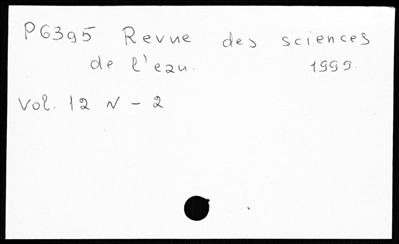 P6395 Revue des sciences
de l'eau. 1999.
Vol. 12 N - 2